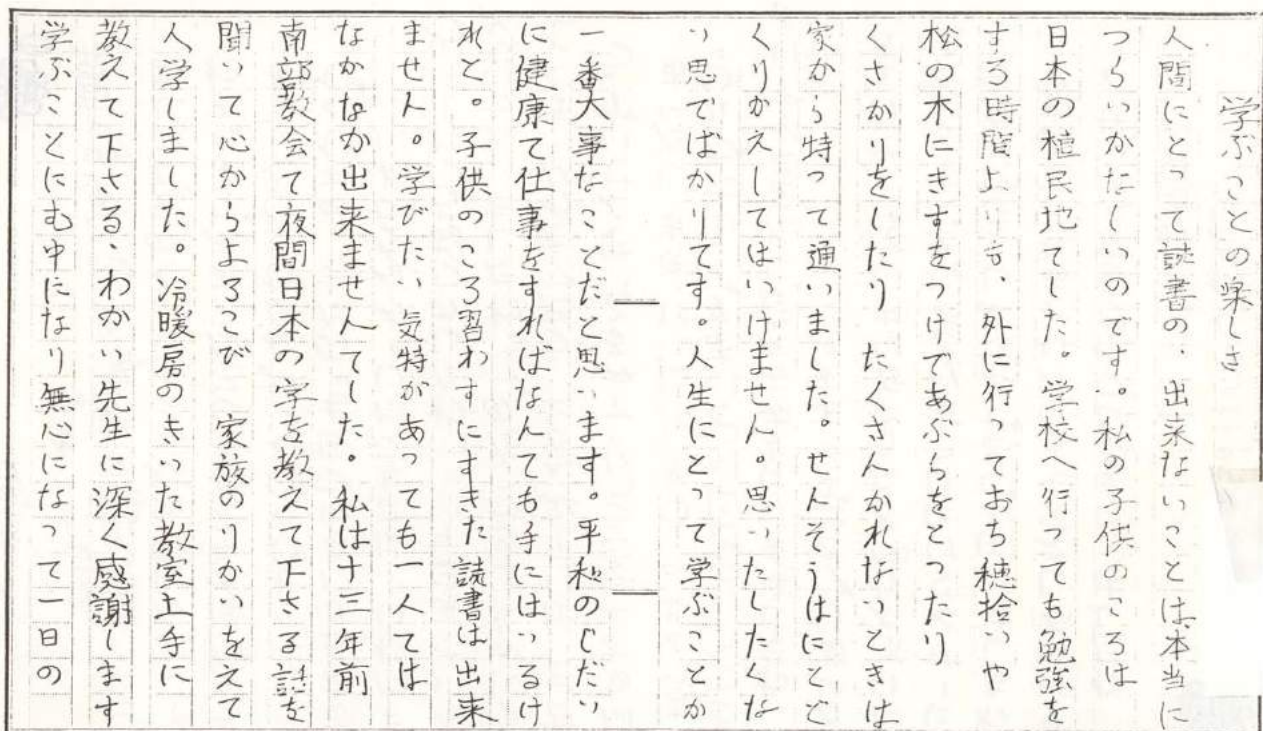 学ぶことの楽しさ
人間にとって読書の、出来ないことは、本当に
つらいかなしいのです。私の子供のころは
日本の植民地てした。学校へ行っても勉強を
する時間よりも、外に行っておち穂拾いや
松の木にきすをつけてあぶらをとったり
くさかりをしたり たくさんかれないときは
家から持って通いました。せんそうはにどと
くりかえしてはいけません。思いたしたくな
い思でばかりてす。人生にとって学ぶことか
一番大事なことだと思います。平和のじだい
に健康て仕事をすればなんても手にはいるけ
れと。子供のころ習わすにすきた読書は出来
ません。学びたい気持があっても一人ては
なかなか出来ませんてした。私は十三年前
南部教会て夜間日本の字を教えて下さる話を
聞いて心からよろこび 家族のりかいをえて
入学しました。冷暖房のきいた教室上手に
教えて下さる、わかい先生に深く感謝します
学ぶことにむ中になり無心になって一日の